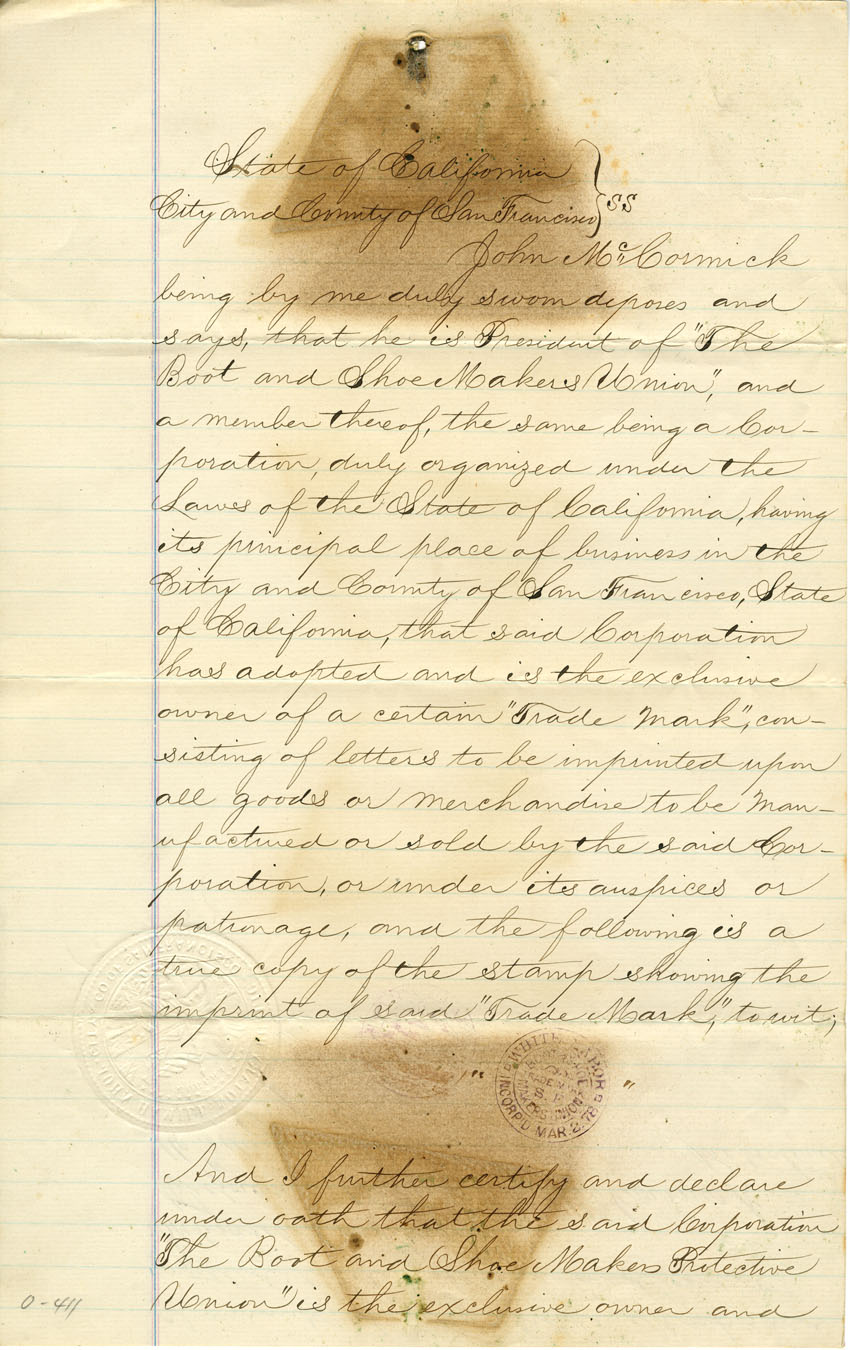 State of California
City and County of San Francisco } SS
John McCormick
being by me duly sworn deposes and
says, that he is President of "The
Boot and Shoe Makers Union", and
a member thereof, the same being a Cor-
poration, duly organized under the
Laws of the State of California, having
its principal place of business in the
City and County of San Francisco, State
of California, that said Corporation
has adopted and is the exclusive
owner of a certain "Trade Mark", con-
sisting of letters to be imprinted upon
all goods or merchandise to be Man-
ufactured or sold by the said Cor-
poration, or under its auspices or
patronage, and the following is a
true copy of the stamp showing the
imprint of said "Trade Mark," to wit;
" WHITE LABOR "
MAKERS UNION
INCORP'D MAR. 2. 78
And I further certify and declare
under oath that the said Corporation
"The Boot and Shoe Makers Protective
Union" is the exclusive owner and
0-411